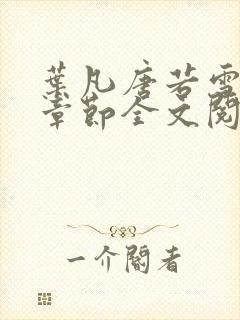 葉凡唐若雪
章節全文閱
一介閣者